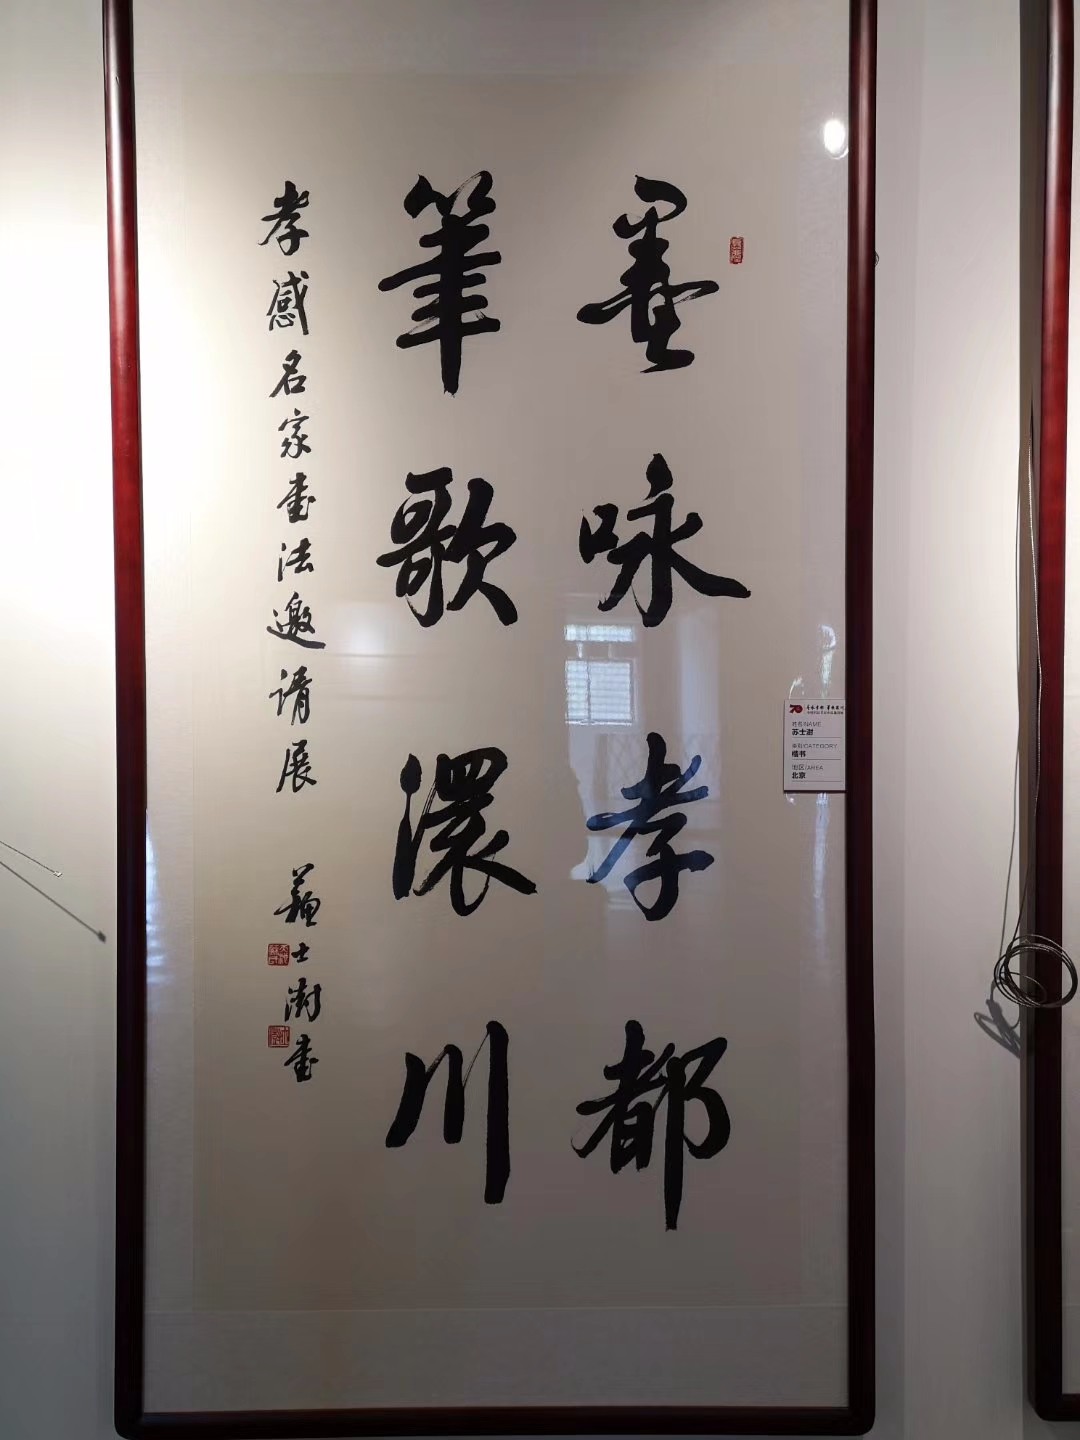 墨咏孝都
筆歌澴川
孝感名家书法邀请展
蘇士澍书
70
姓名/NAME
苏士澍
类别/CATEGORY
楷书
地区/AREA
北京